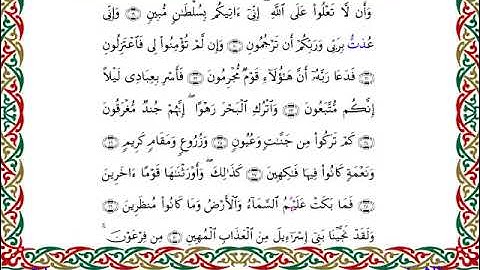 وَأَن لَّا تَعْلُوا۟ عَلَى ٱللَّهِ ۖ إِنِّىٓ ءَاتِيكُم بِسُلْطَـٰنٍ مُّبِينٍ ۝ وَإِنِّى
عُذْتُ بِرَبِّى وَرَبِّكُمْ أَن تَرْجُمُونِ ۝ وَإِن لَّمْ تُؤْمِنُوا۟ لِى فَٱعْتَزِلُونِ
۝ فَدَعَا رَبَّهُۥٓ أَنَّ هَـٰٓؤُلَآءِ قَوْمٌ مُّجْرِمُونَ ۝ فَأَسْرِ بِعِبَادِى لَيْلًا
إِنَّكُم مُّتَّبَعُونَ ۝ وَٱتْرُكِ ٱلْبَحْرَ رَهْوًا ۖ إِنَّهُمْ جُندٌ مُّغْرَقُونَ
۝ كَمْ تَرَكُوا۟ مِن جَنَّـٰتٍ وَعُيُونٍ ۝ وَزُرُوعٍ وَمَقَامٍ كَرِيمٍ ۝
وَنَعْمَةٍ كَانُوا۟ فِيهَا فَـٰكِهِينَ ۝ كَذَٰلِكَ ۖ وَأَوْرَثْنَـٰهَا قَوْمًا ءَاخَرِينَ
۝ فَمَا بَكَتْ عَلَيْهِمُ ٱلسَّمَآءُ وَٱلْأَرْضُ وَمَا كَانُوا۟ مُنظَرِينَ ۝
وَلَقَدْ نَجَّيْنَا بَنِىٓ إِسْرَٰٓءِيلَ مِنَ ٱلْعَذَابِ ٱلْمُهِينِ ۝ مِن فِرْعَوْنَ ۚ